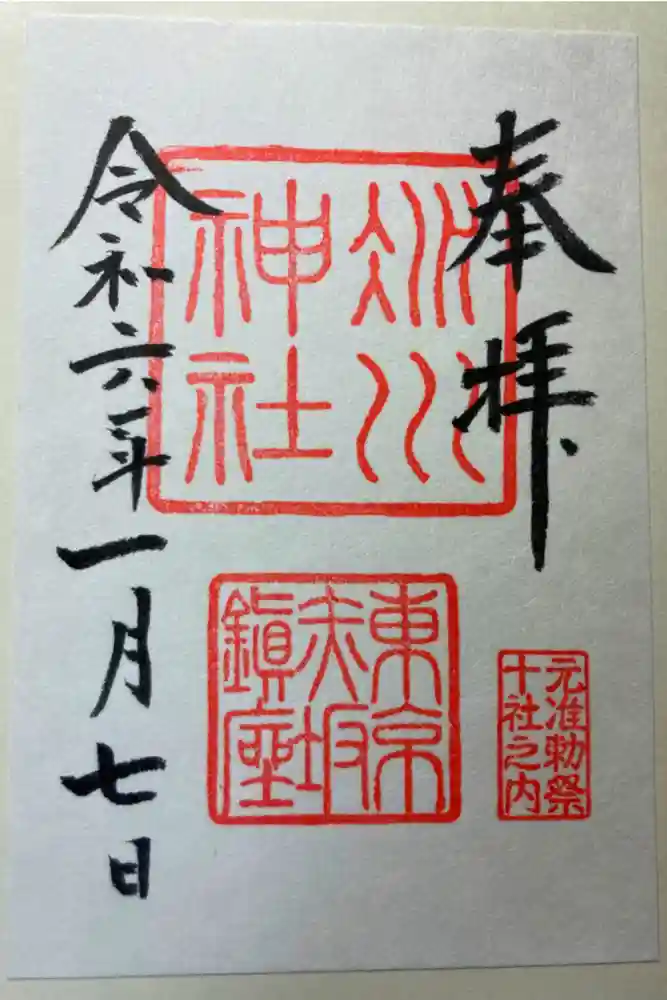 奉拝
氷川
神社
東京
赤坂
鎮座
元准勅祭
十社之内
令和六年一月七日